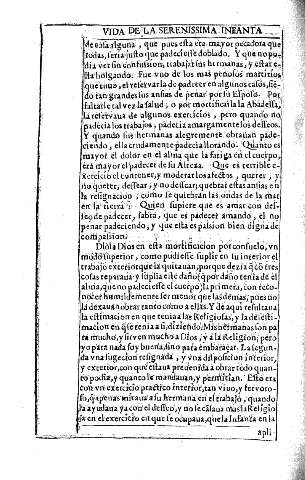 VIDA DE LA SERENISSIMA INFANTA
de cosa alguna, que pues esta era mayor pecadora que
todas, seria justo que padeciesse doblado. Y que no po-
dia ver sin confusion, trabajar sus hermanas, y estar e-
lla holgando. Fue vno de los mas penosos martirios
que tuuo, el reservarla de padecer en algunos casos, siē-
do tan grandes las ansias de penar por su Esposo. Por
faltarle tal vez la salud; o por mortificarla la Abadessa,
la reservaua de algunos exercicios, pero quando no
padecia los trabajos, padecia amargamente los desseos.
Y quando sus hermanas alegremente obrauan pade-
ciendo, ella crudamente padecia llorando. Quanto es
mayor el dolor en el alma que la fatiga en el cuerpo,
era mayor el padecer de su Alteza. Que es terrible e-
xercicio el contener, y moderar los afectos, querer, y
no querer, dessear, y no dessear; quebrar estas ansias en
la resignacion, como se quiebran las ondas de la mar
en la tierra. Quien supiere que es amar con des-
seo de padecer, sabrà, que es padecer amando, el no
penar padeciendo; y que esta es passion bien digna de
compassion.
Diòla Dios en esta mortificacion por consuelo, vn
modo superior, como pudiesse suplir en su interior el
trabajo exterior que la quitauan, porque dezia q̄ cō tres
cosas reparaua y suplia este daño (q̄ por daño tenia de el
alma, que no padeciesse el cuerpo) la primera, con reco-
nocer humildemente ser menos que las demas, pues no
la dexauan obrar tanto como a ellas. Y de aqui resultaua
la estimacion en que tenia a las Religiosas, y la desesti-
macion en que tenia a si, diziendo. Mis hermanas son pa
ra mucho, y sirven mucho a Dios, y a la Religion, pero
yo para nada soy buena, sino para embaraçar. La segun-
da vna sugecion resignada, y vna disposicion interior,
y exterior, con que estaua preuenida a obrar todo quan-
to podia, y quanto le mandauan, y permitian. Esto era
con vn exercicio practico interior, tan viuo, y fervoro-
so, q̄ apenas miraua a su hermana en el trabajo, quando
la ayudaua ya con el desseo, y no se cāsaua mas la Religio
sa en el exercicio en que se ocupaua, que la Infanta en la
apli-